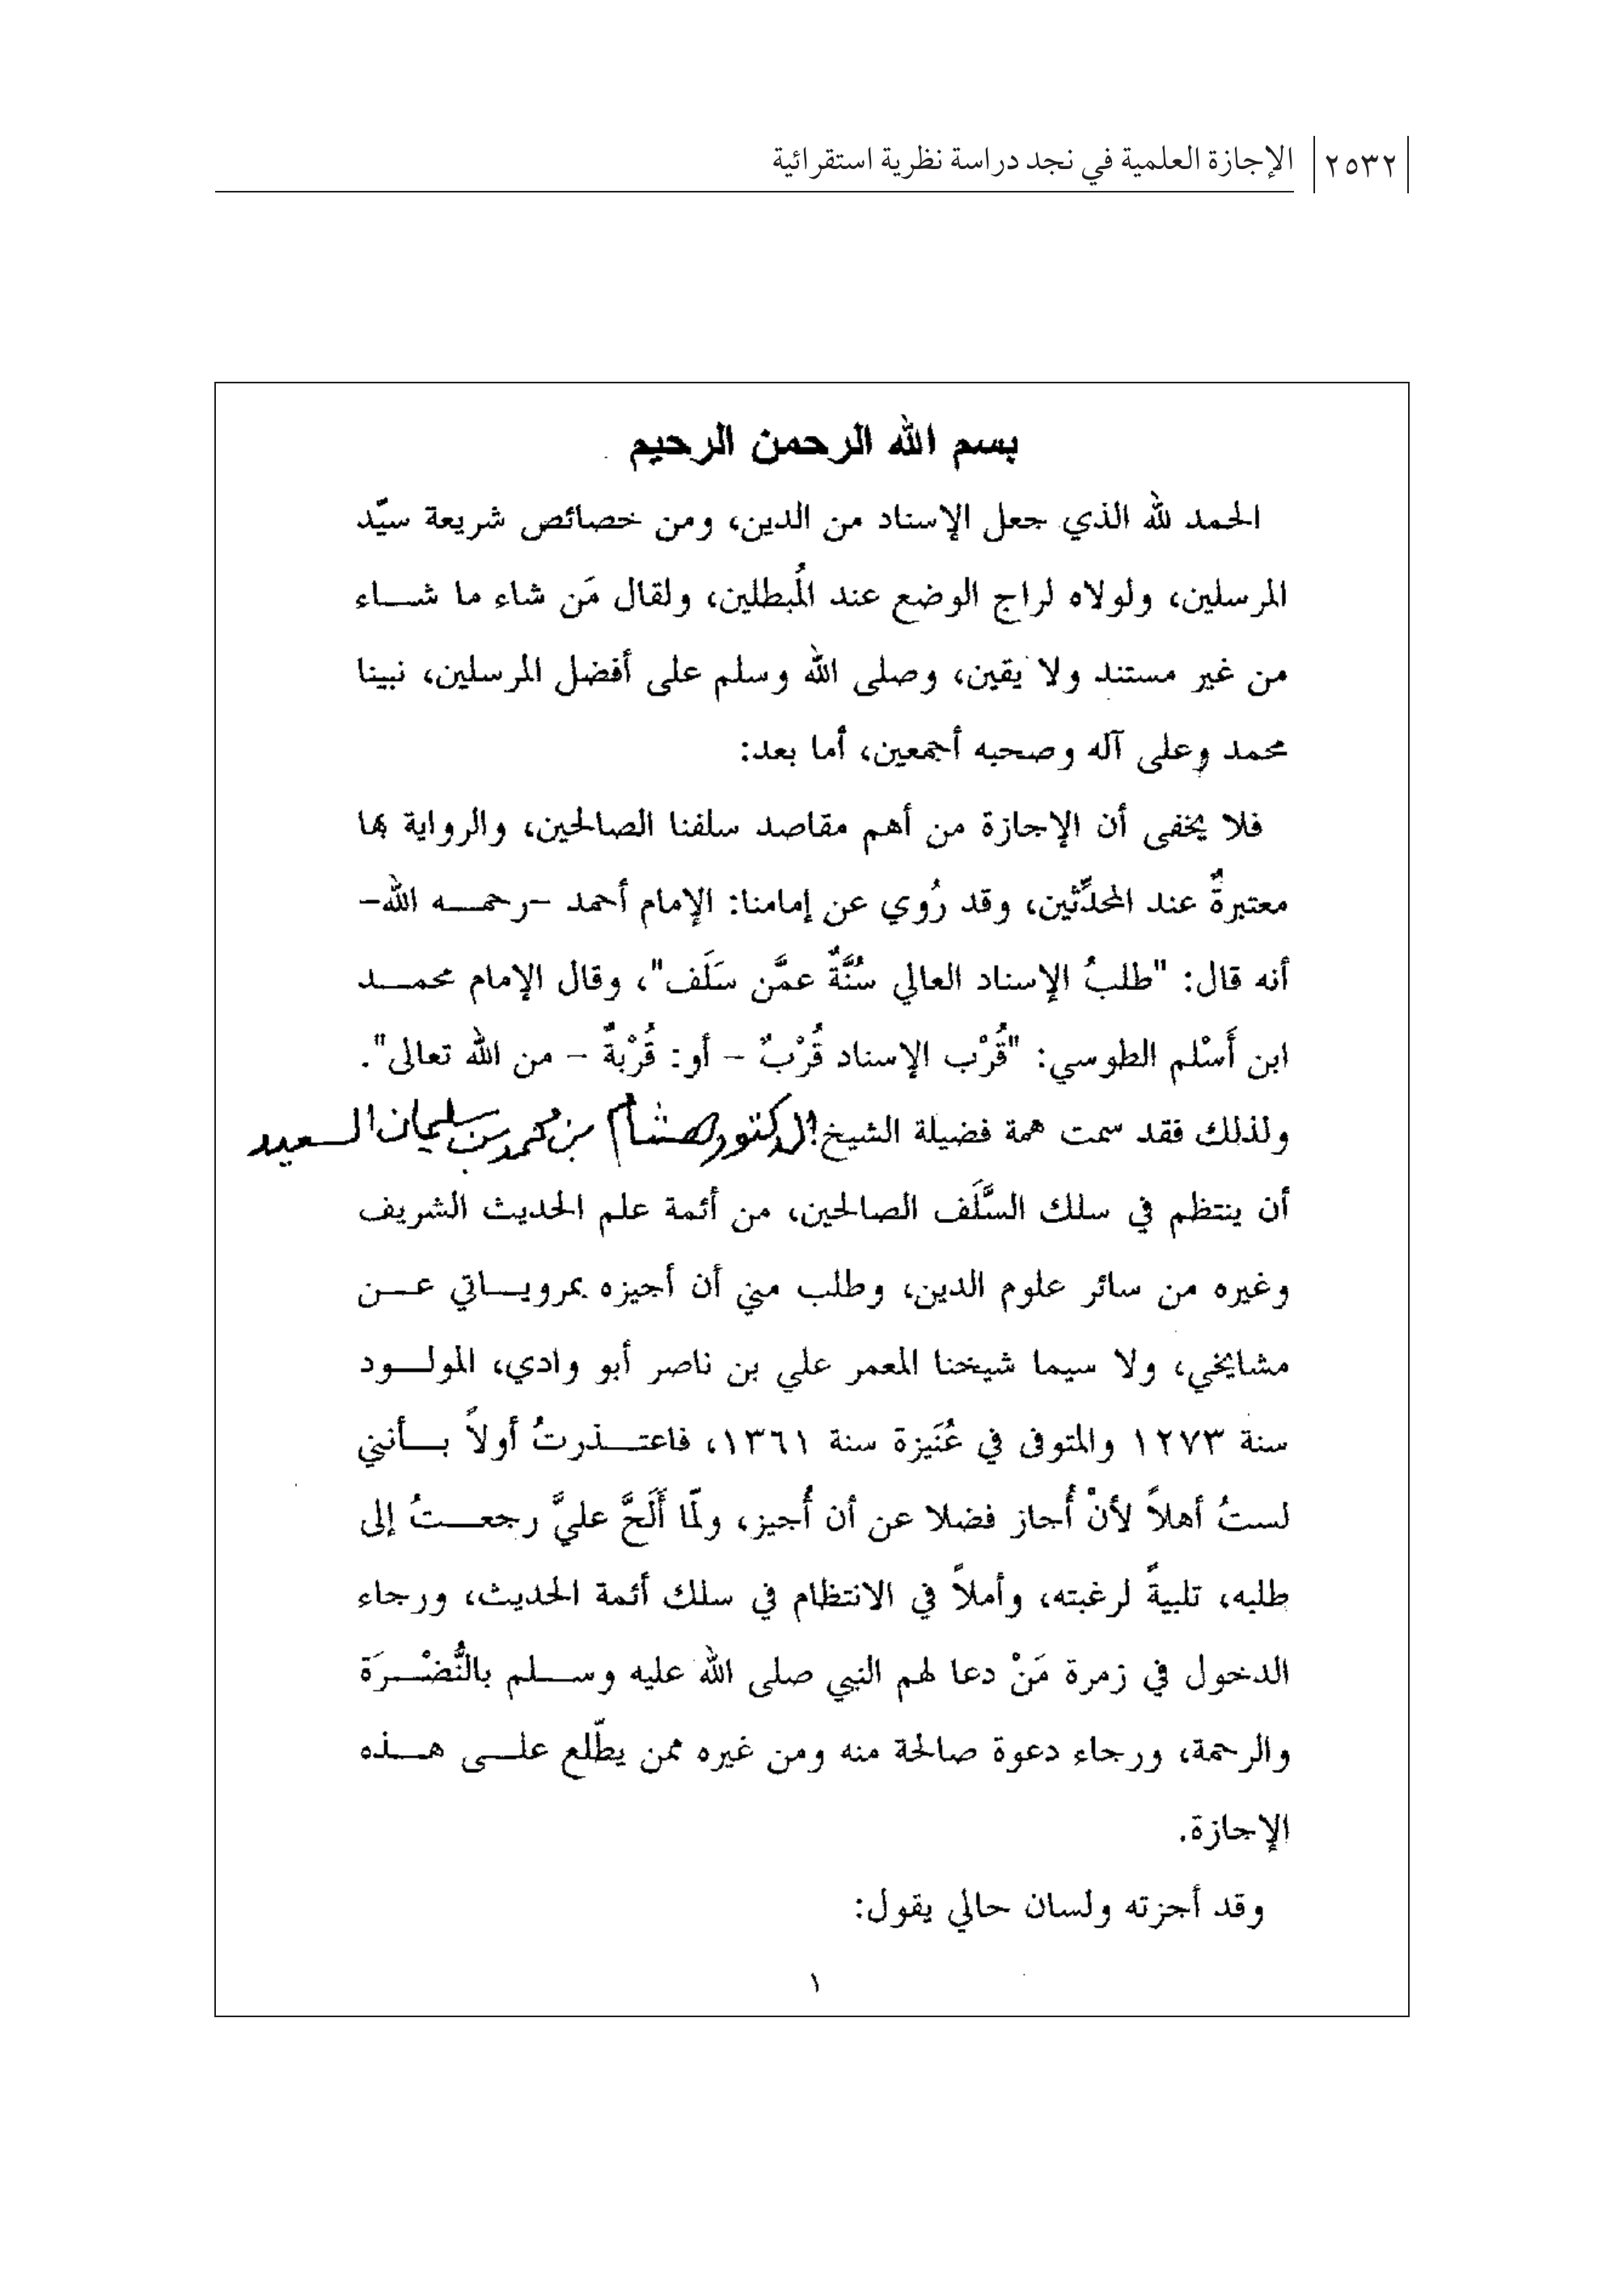 ٢٥٣٢ الإجازة العلمية في نجد دراسة نظرية استقرائية
بسم الله الرحمن الرحيم
الحمد لله الذي جعل الإسناد من الدين، ومن خصائص شريعة سيّد
المرسلين، ولولاه لراج الوضع عند المُبطلين، ولقال مَن شاء ما شاء
من غير مستند ولا يقين، وصلى الله وسلم على أفضل المرسلين، نبينا
محمد وعلى آله وصحبه أجمعين، أما بعد:
فلا يخفى أن الإجازة من أهم مقاصد سلفنا الصالحين، والرواية بها
معتبرةٌ عند المحدِّثين، وقد رُوي عن إمامنا: الإمام أحمد -رحمه الله-
أنه قال: "طلبُ الإسناد العالي سُنَّةٌ عمَّن سَلَف"، وقال الإمام محمد
ابن أَسْلم الطوسي: "قُرْب الإسناد قُرْبٌ – أو: قُرْبةٌ – من الله تعالى".
ولذلك فقد سمت همة فضيلة الشيخ/الدكتور هشام بن محمد بن سليمان السعيد
أن ينتظم في سلك السَّلَف الصالحين، من أئمة علم الحديث الشريف
وغيره من سائر علوم الدين، وطلب مني أن أجيزه بمروياتي عن
مشايخي، ولا سيما شيخنا المعمر علي بن ناصر أبو وادي، المولود
سنة ١٢٧٣ والمتوفى في عُنَيزة سنة ١٣٦١، فاعتذرتُ أولاً بأنني
لستُ أهلاً لأنْ أُجاز فضلا عن أن أُجيز، ولمّا أَلَحَّ عليَّ رجعتُ إلى
طلبه، تلبيةً لرغبته، وأملاً في الانتظام في سلك أئمة الحديث، ورجاء
الدخول في زمرة مَنْ دعا لهم النبي صلى الله عليه وسلم بالنُّضْرَة
والرحمة، ورجاء دعوة صالحة منه ومن غيره ممن يطّلع على هذه
الإجازة.
وقد أجزته ولسان حالي يقول:
١